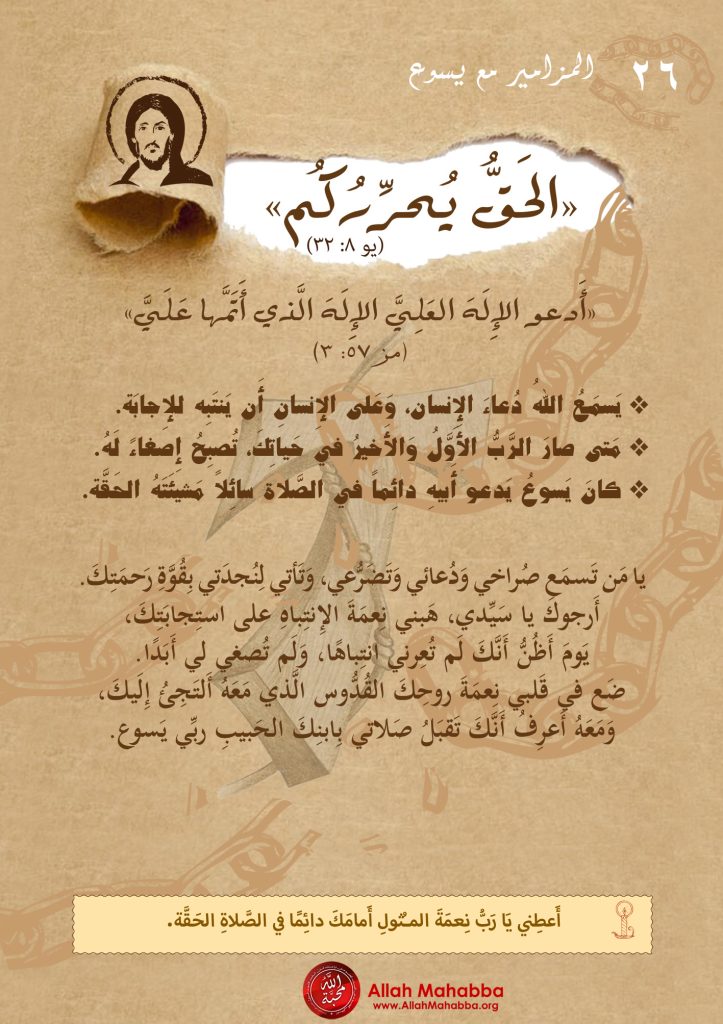 ٢٦ المزامير مع يسوع
«الحَقُّ يُحرِّرُكُم»
(يو ٨: ٣٢)
«أَدعو الإِلَهَ العَلِيَّ الإِلَهَ الَّذي أَتَمَّها عَلَيَّ»
(مز ٥٧: ٣)
❖ يَسمَعُ اللهُ دُعاءَ الإِنسان، وَعَلى الإِنسانِ أَن يَنتَبِه للإِجابَة.
❖ مَتى صارَ الرَّبُّ الأَوَّلُ وَالأَخيرُ في حَياتِكَ، تُصبِحُ إِصغاءً لَهُ.
❖ كانَ يَسوعُ يَدعو أَبيهِ دائِماً في الصَّلاة سائِلاً مَشيئَتَهُ الحَقَّة.
يا مَن تَسمَع صُراخي وَدُعائي وَتَضَرُّعي، وَتَأتي لِنُجدَتي بِقُوَّةِ رَحمَتِكَ.
أَرجوكَ يا سَيِّدي، هَبني نِعمَةَ الإِنتِباهِ على استِجابَتِكَ،
يَومَ أَظُنُّ أَنَّكَ لَم تُعِرني انتِباهًا، وَلَم تُصغي لي أَبَدًا.
ضَع في قَلبي نِعمَةَ روحِكَ القُدُّوس الَّذي مَعَهُ أَلتَجِئُ إِلَيكَ،
وَمَعَهُ أَعرِفُ أَنَّكَ تَقبَلُ صَلاتي بِابنِكَ الحَبيبِ ربِّي يَسوع.
أَعطِني يَا رَبُّ نِعمَةَ المــُثولِ أَمامَكَ دائِمًا في الصَّلاةِ الحَقَّة.
اللّه محبّة
Allah Mahabba
www.AllahMahabba.org